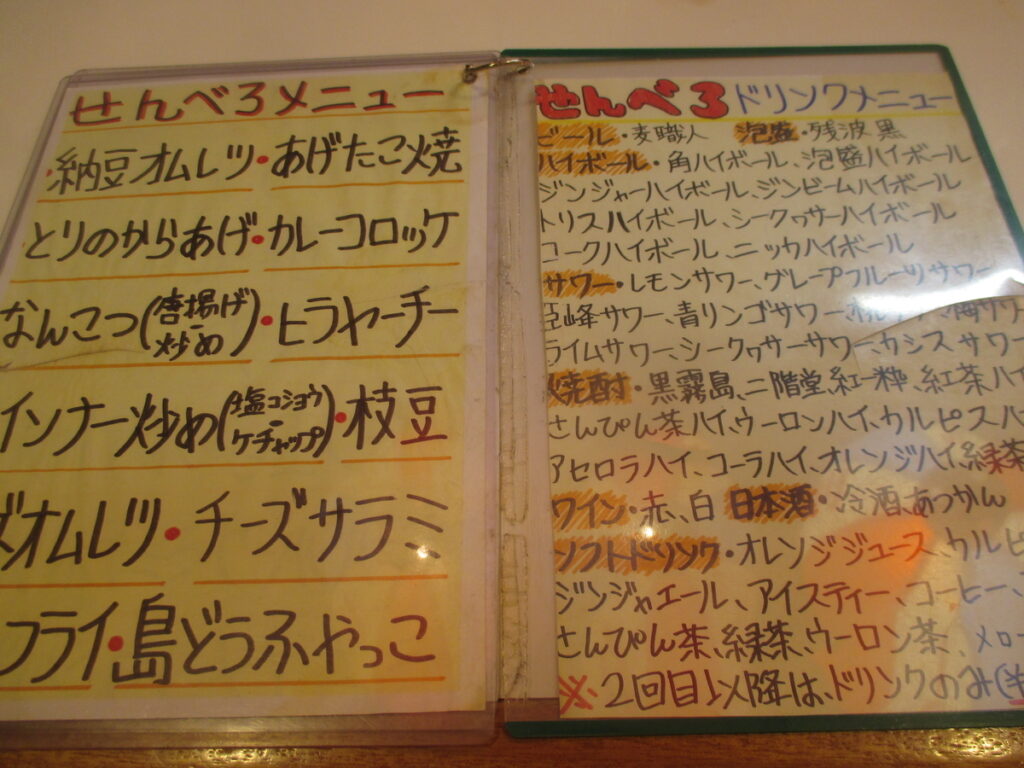 せんべろメニュー
納豆オムレツ・あげたこ焼
とりのからあげ・カレーコロッケ
なんこつ(唐揚げ 炒め)・ヒラヤーチー
インナー炒め(塩コショウ ケチャップ)・枝豆
ズオムレツ・チーズサラミ
フライ・島どうふやっこ
せんべろドリンクメニュー
ビール・麦職人 泡盛・残波黒
ハイボール・角ハイボール、泡盛ハイボール
ジンジャーハイボール、ジンビームハイボール
トリスハイボール、シークヮサーハイボール
コークハイボール、ニッカハイボール
サワー・レモンサワー、グレープフルーツサワー
巨峰サワー、青リンゴサワー、梅サワー
ライムサワー、シークヮサーサワー、カシスサワー
焼酎・黒霧島、二階堂、紅一粋、紅茶ハイ
さんぴん茶ハイ、ウーロンハイ、カルピスハ
アセロラハイ、コーラハイ、オレンジハイ、緑茶
ワイン・赤、白 日本酒・冷酒、あつかん
ソフトドリンク・オレンジジュース、カルピ
ジンジャエール、アイスティー、コーヒー、
さんぴん茶、緑茶、ウーロン茶、メロー
※2回目以降は、ドリンクのみ(